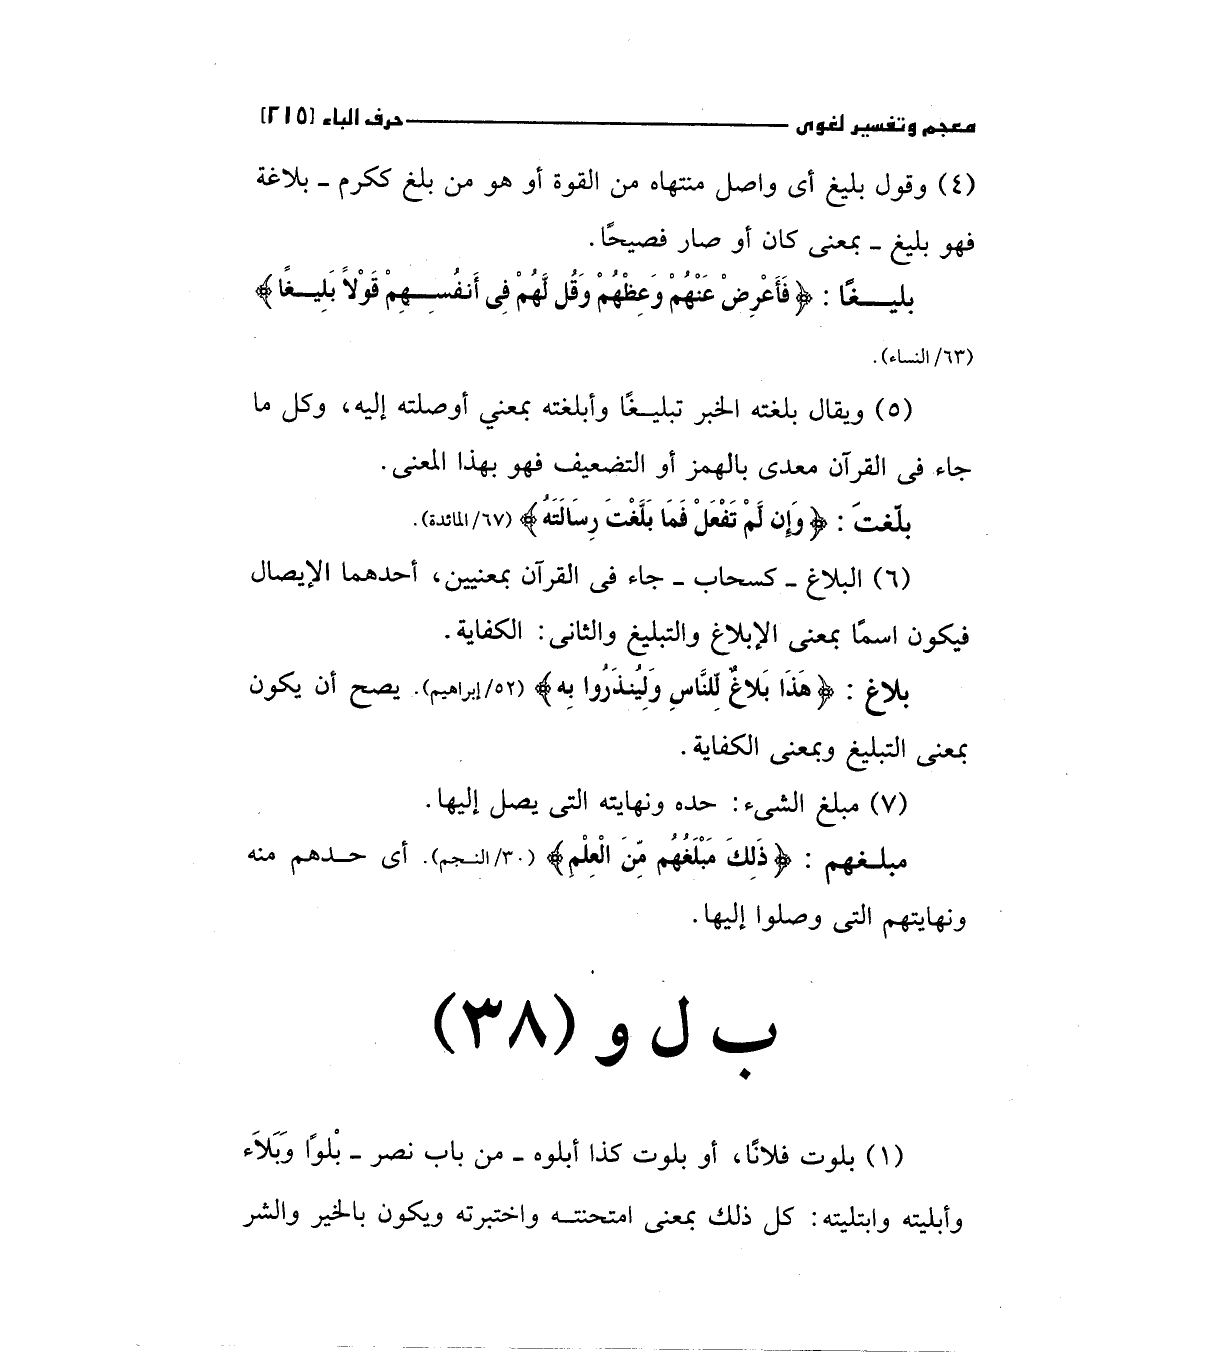 معجم وتفسير لغوى حرف الباء [٢١٥]
(٤) وقول بليغ أى واصل منتهاه من القوة أو هو من بلغ ككرم ـ بلاغة
فهو بليغ ـ بمعنى كان أو صار فصيحًا.
بليـــغًا : ﴿فَأَعْرِضْ عَنْهُمْ وَعِظْهُمْ وَقُل لَّهُمْ فِى أَنفُسِـهِمْ قَوْلاً بَلِيـغًا﴾
(٦٣/ النساء).
(٥) ويقال بلغته الخبر تبليـغًا وأبلغته بمعني أوصلته إليه، وكل ما
جاء فى القرآن معدى بالهمز أو التضعيف فهو بهذا المعنى.
بلّغتَ : ﴿وَإِن لَّمْ تَفْعَلْ فَمَا بَلَّغْتَ رِسَالَتَهُ﴾ (٦٧/ المائدة).
(٦) البلاغ ـ كسحاب ـ جاء فى القرآن بمعنيين، أحدهما الإيصال
فيكون اسمًا بمعنى الإبلاغ والتبليغ والثانى: الكفاية.
بلاغ : ﴿هَذَا بَلاغٌ لِّلنَّاسِ وَلِيُنذَرُوا بِه﴾ (٥٢/ إبراهيم). يصح أن يكون
بمعنى التبليغ وبمعنى الكفاية.
(٧) مبلغ الشىء: حده ونهايته التى يصل إليها.
مبلـغهم : ﴿ذَلِكَ مَبْلَغُهُم مِّنَ الْعِلْمِ﴾ (٣٠/ النـجم). أى حـدهم منه
ونهايتهم التى وصلوا إليها.
ب ل و (٣٨)
(١) بلوت فلانًا، أو بلوت كذا أبلوه ـ من باب نصر ـ بْلوًا وَبَلاَء
وأبليته وابتليته: كل ذلك بمعنى امتحنتـه واختبرته ويكون بالخير والشر